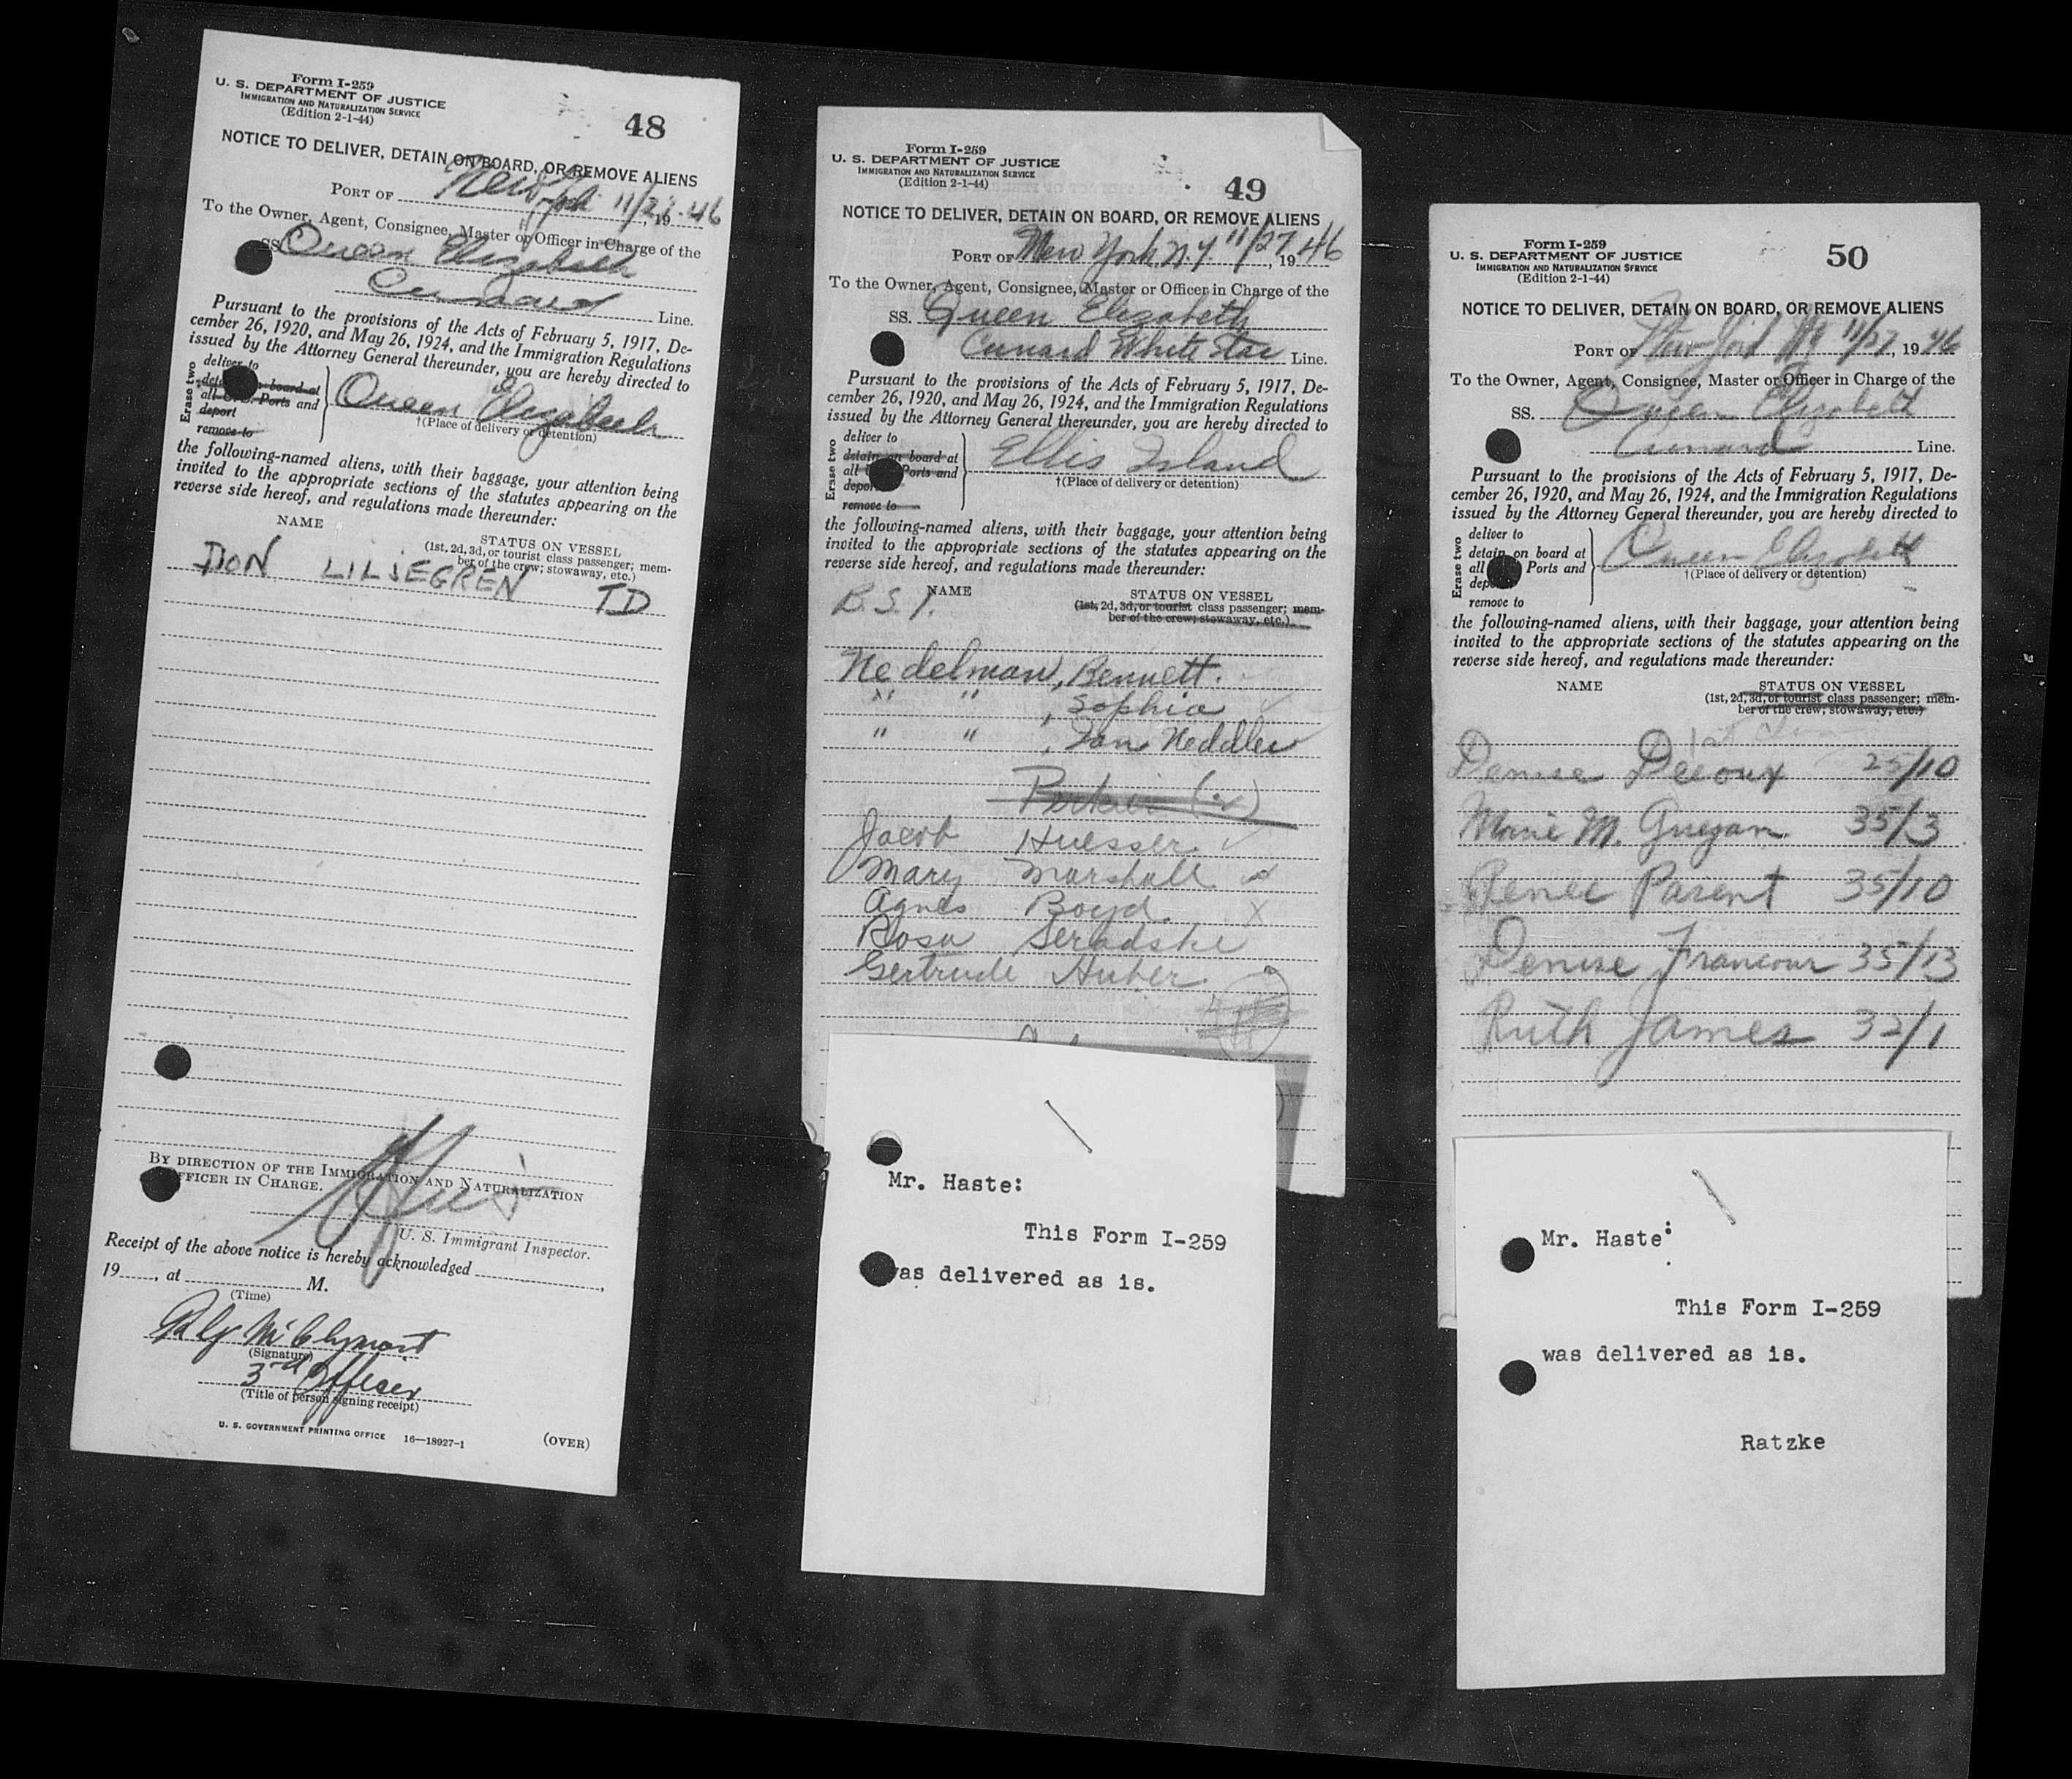 Form I-259
U. S. DEPARTMENT OF JUSTICE
IMMIGRATION AND NATURALIZATION SERVICE
(Edition 2-1-44)
48
NOTICE TO DELIVER, DETAIN ON BOARD, OR REMOVE ALIENS
PORT OF New York 11/27, 1946
To the Owner, Agent, Consignee, Master or Officer in Charge of the
SS. Queen Elizabeth
Cunard Line.
Pursuant to the provisions of the Acts of February 5, 1917, De-
cember 26, 1920, and May 26, 1924, and the Immigration Regulations
issued by the Attorney General thereunder, you are hereby directed to
Erase two
deliver to
board at
all Ports and
deport
remove to
Queen Elizabeth
†(Place of delivery or detention)
the following-named aliens, with their baggage, your attention being
invited to the appropriate sections of the statutes appearing on the
reverse side hereof, and regulations made thereunder:
NAME
STATUS ON VESSEL
(1st, 2d, 3d, or tourist class passenger; mem-
ber of the crew; stowaway, etc.)
DON LILJEGREN TD
BY DIRECTION OF THE IMMIGRATION AND NATURALIZATION
OFFICER IN CHARGE.
U. S. Immigrant Inspector.
Receipt of the above notice is hereby acknowledged
19 , at M.
(Time)
(Signature)
3rd Officer
(Title of person signing receipt)
U. S. GOVERNMENT PRINTING OFFICE 16—18927-1 (OVER)
Form I-259
U. S. DEPARTMENT OF JUSTICE
IMMIGRATION AND NATURALIZATION SERVICE
(Edition 2-1-44)
49
NOTICE TO DELIVER, DETAIN ON BOARD, OR REMOVE ALIENS
PORT OF New York, N.Y. 11/27, 1946
To the Owner, Agent, Consignee, Master or Officer in Charge of the
SS. Queen Elizabeth
Cunard White Star Line.
Pursuant to the provisions of the Acts of February 5, 1917, De-
cember 26, 1920, and May 26, 1924, and the Immigration Regulations
issued by the Attorney General thereunder, you are hereby directed to
Erase two
deliver to
detain on board at
all Ports and
deport
remove to
Ellis Island
†(Place of delivery or detention)
the following-named aliens, with their baggage, your attention being
invited to the appropriate sections of the statutes appearing on the
reverse side hereof, and regulations made thereunder:
B.S.I. NAME
STATUS ON VESSEL
(1st, 2d, 3d, or tourist class passenger; mem-
ber of the crew; stowaway, etc.)
Nedelman, Bennett.
" " , Sophia
" " , Neddler
Jacob Huesser
Mary Marshall
Agnes Boyd X
Rosa Seradske
Gertrude Huber
Mr. Haste:
This Form I-259
was delivered as is.
Form I-259
U. S. DEPARTMENT OF JUSTICE
IMMIGRATION AND NATURALIZATION SERVICE
(Edition 2-1-44)
50
NOTICE TO DELIVER, DETAIN ON BOARD, OR REMOVE ALIENS
PORT OF New York NY 11/27, 1946
To the Owner, Agent, Consignee, Master or Officer in Charge of the
SS. Queen Elizabeth
Cunard Line.
Pursuant to the provisions of the Acts of February 5, 1917, De-
cember 26, 1920, and May 26, 1924, and the Immigration Regulations
issued by the Attorney General thereunder, you are hereby directed to
Erase two
deliver to
detain on board at
all Ports and
deport
remove to
Queen Elizabeth
†(Place of delivery or detention)
the following-named aliens, with their baggage, your attention being
invited to the appropriate sections of the statutes appearing on the
reverse side hereof, and regulations made thereunder:
NAME
STATUS ON VESSEL
(1st, 2d, 3d, or tourist class passenger; mem-
ber of the crew; stowaway, etc.)
1st Class
Denise Decoux 25/10
Marie M. Guegan 35/3
Renee Parent 35/10
Denise Francour 35/13
Ruth James 32/1
Mr. Haste:
This Form I-259
was delivered as is.
Ratzke